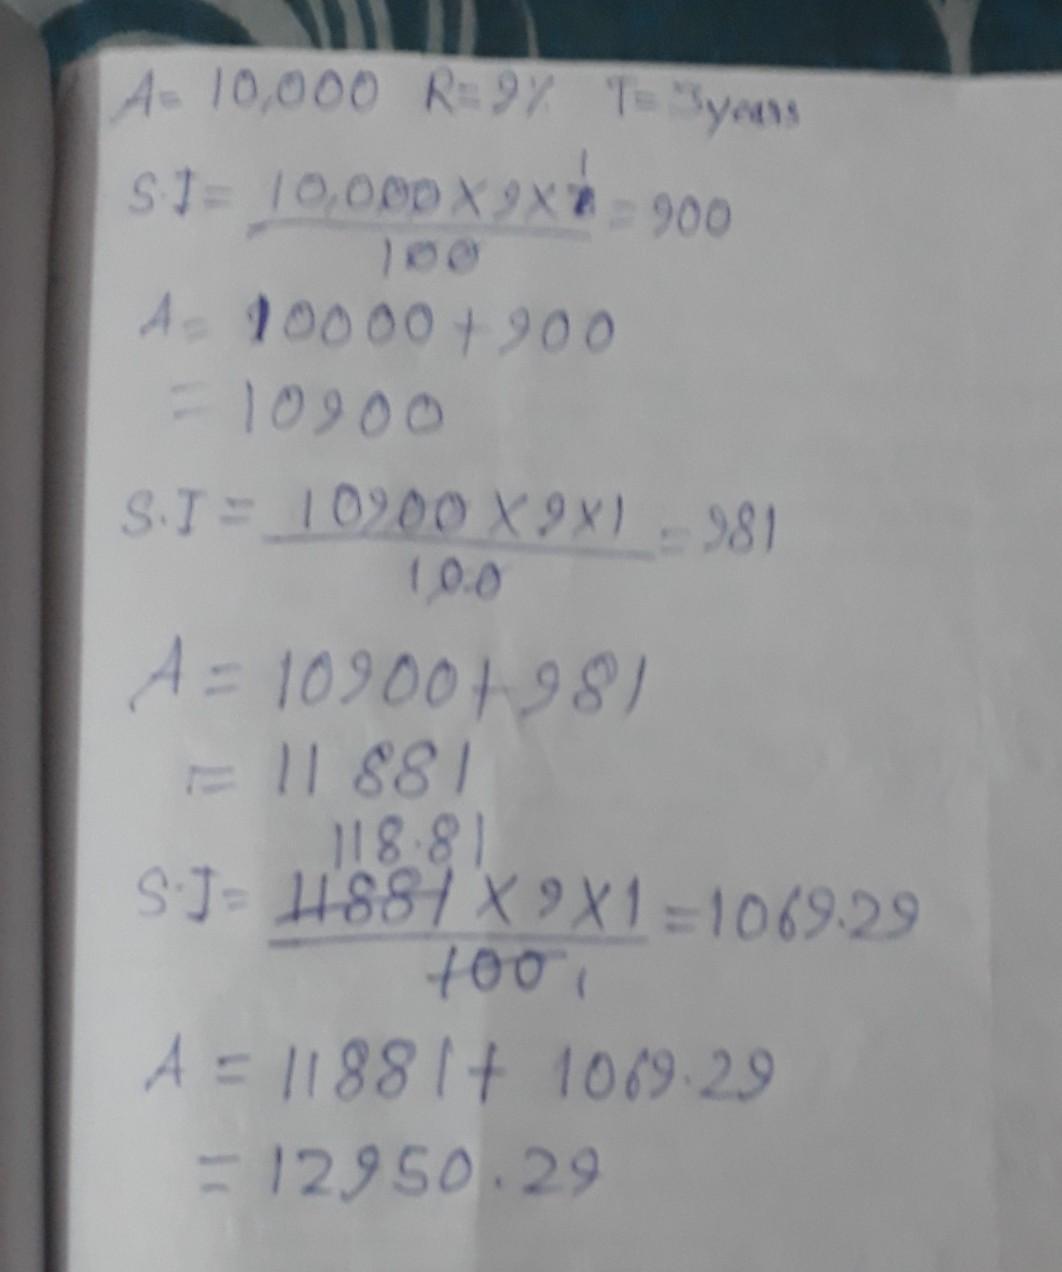 A= 10,000 R=9% T= 3years
1
S.I= 10,000 X 9 X = 900
100
A= 10000 + 900
= 10900
S.I = 10900 X 9 X 1 = 981
100
A = 10900 + 981
= 11881
118.81
S.I= 11881 X 9 X 1 = 1069.29
100 1
A = 11881 + 1069.29
= 12950.29